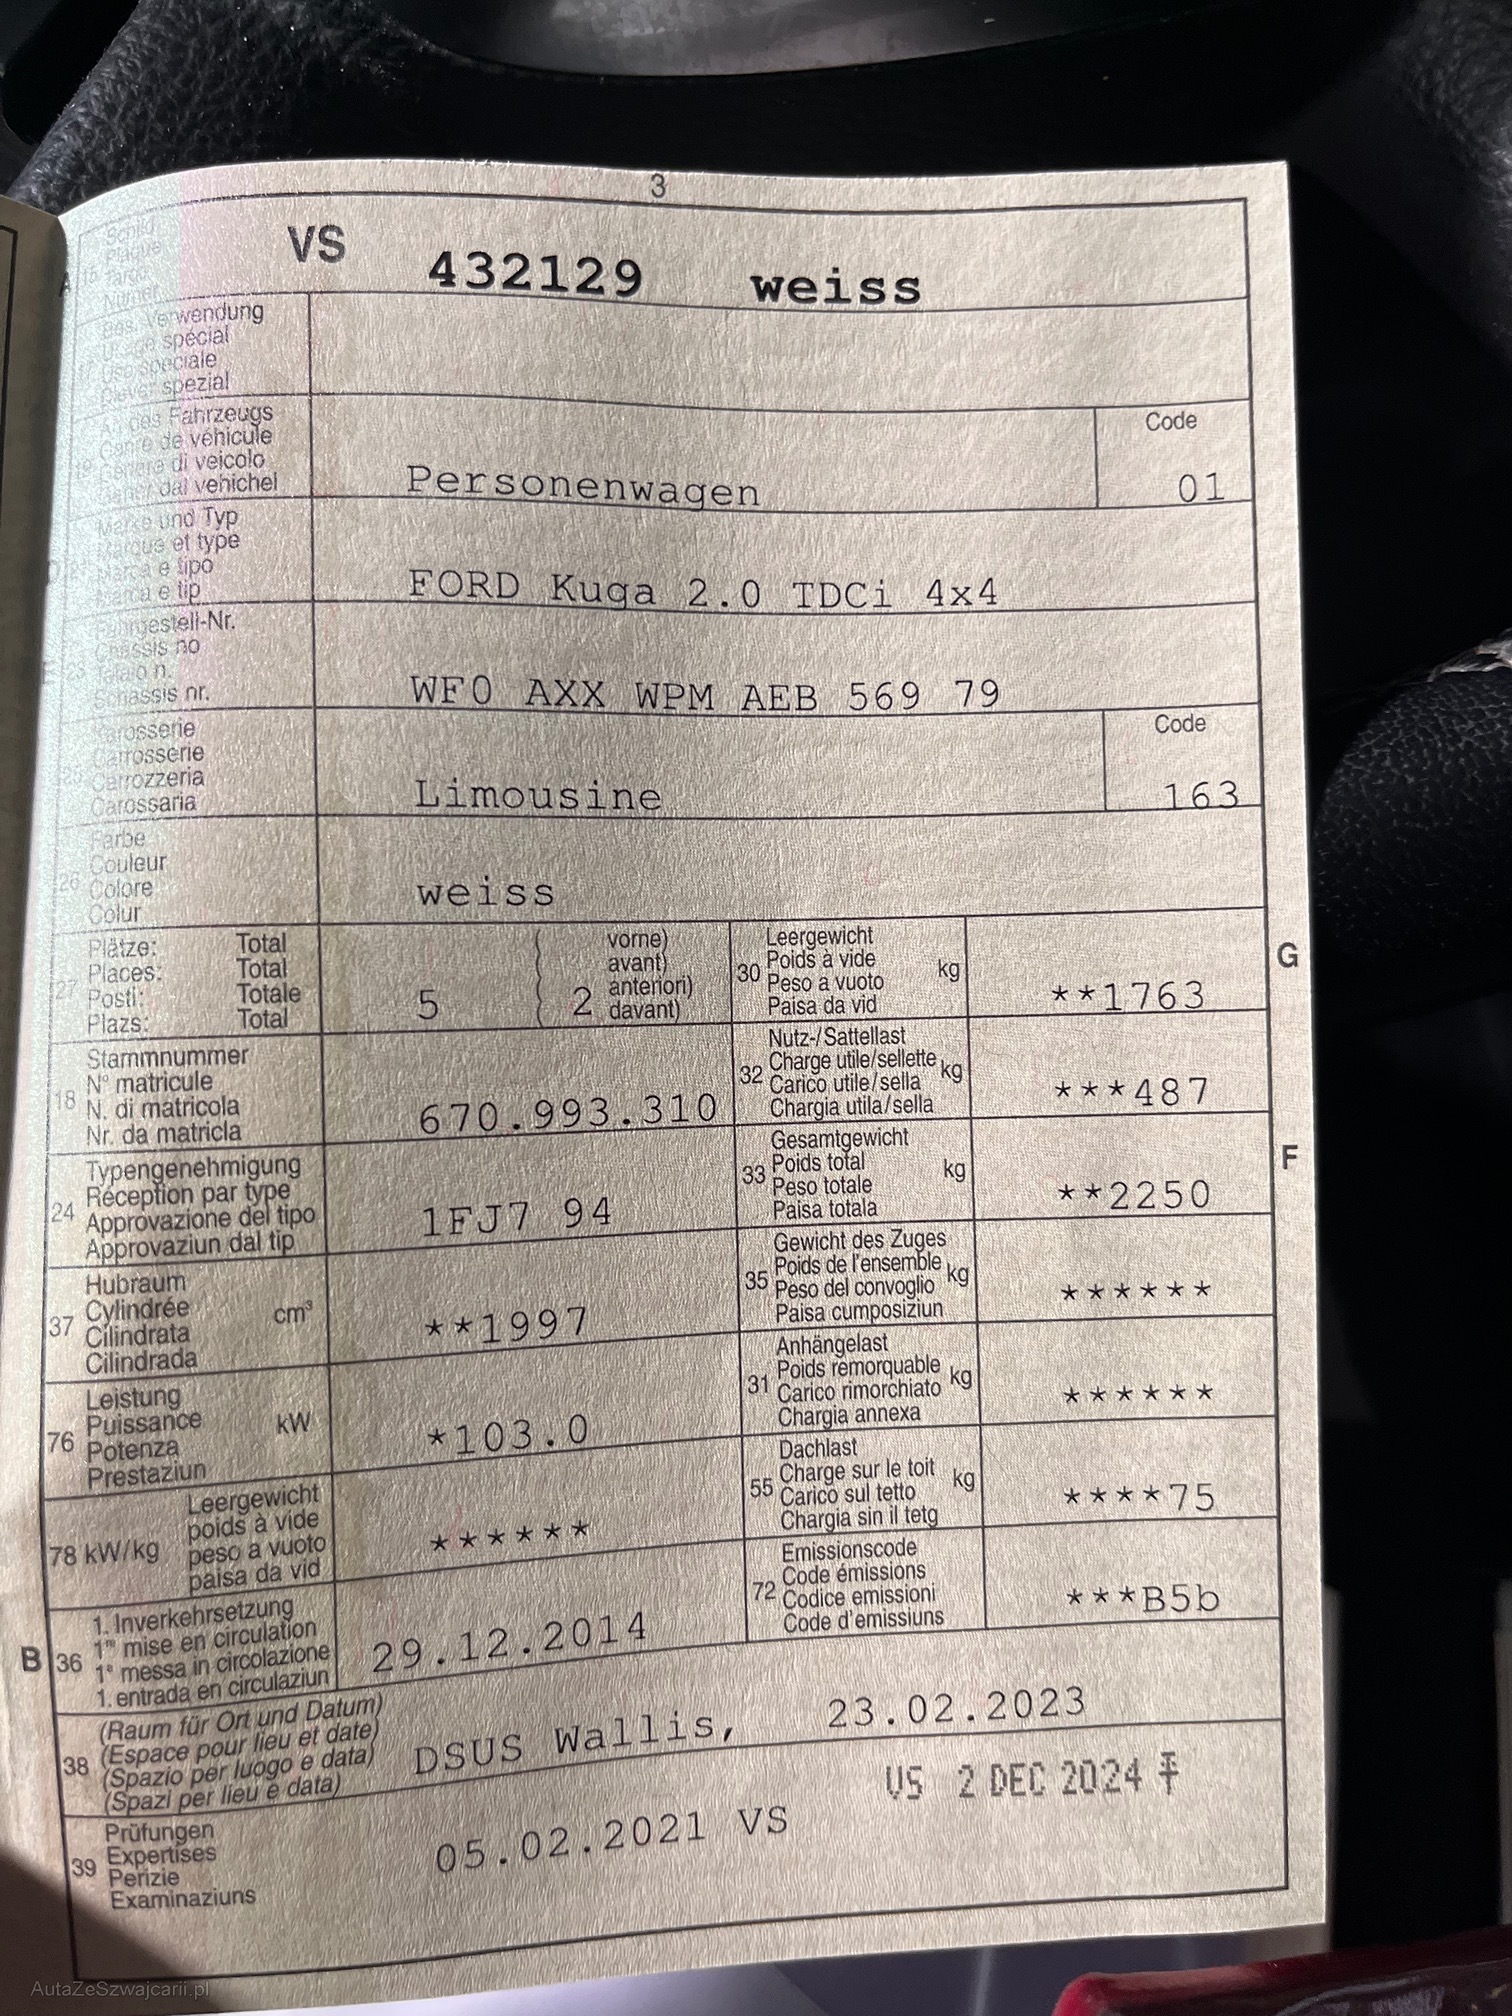 3
VS 432129 weiss
Schild
Plaque
15 Targa
Numer
A
Bes. Verwendung
Usage spécial
Uso speciale
Diever spezial
Art des Fahrzeugs
Genre de véhicule
19 Genere di veicolo
Gener dal vehichel
Personenwagen
Code
01
Marke und Typ
Marque et type
Marca e tipo
Marca e tip
FORD Kuga 2.0 TDCi 4x4
Fahrgestell-Nr.
Châssis no
Telaio n.
Schassis nr.
E 23
WF0 AXX WPM AEB 569 79
Karosserie
Carrosserie
25 Carrozzeria
Carossaria
Limousine
Code
163
Farbe
Couleur
26 Colore
Colur
weiss
Plätze: Total
Places: Total
27 Posti: Totale
Plazs: Total
5
( vorne)
( avant)
( 2 anteriori)
( davant)
Leergewicht
30 Poids à vide kg
Peso a vuoto
Paisa da vid
**1763
G
Stammnummer
18 N° matricule
N. di matricola
Nr. da matricla
670.993.310
Nutz-/Sattellast
32 Charge utile/sellette kg
Carico utile/sella
Chargia utila/sella
***487
Typengenehmigung
24 Réception par type
Approvazione del tipo
Approvaziun dal tip
1FJ7 94
Gesamtgewicht
33 Poids total kg
Peso totale
Paisa totala
**2250
F
Hubraum
37 Cylindrée cm³
Cilindrata
Cilindrada
**1997
Gewicht des Zuges
35 Poids de l'ensemble kg
Peso del convoglio
Paisa cumposiziun
******
Leistung
76 Puissance kW
Potenza
Prestaziun
*103.0
Anhängelast
31 Poids remorquable kg
Carico rimorchiato
Chargia annexa
******
Leergewicht
78 kW/kg poids à vide
peso a vuoto
paisa da vid
******
Dachlast
55 Charge sur le toit kg
Carico sul tetto
Chargia sin il tetg
****75
B
1. Inverkehrsetzung
36 1re mise en circulation
1a messa in circolazione
1. entrada en circulaziun
29.12.2014
Emissionscode
72 Code émissions
Codice emissioni
Code d'emissiuns
***B5b
(Raum für Ort und Datum)
38 (Espace pour lieu et date)
(Spazio per luogo e data)
(Spazi per lieu e data)
DSUS Wallis, 23.02.2023
Prüfungen
39 Expertises
Perizie
Examinaziuns
05.02.2021 VS
VS 2 DEC 2024
AutaZeSzwajcarii.pl